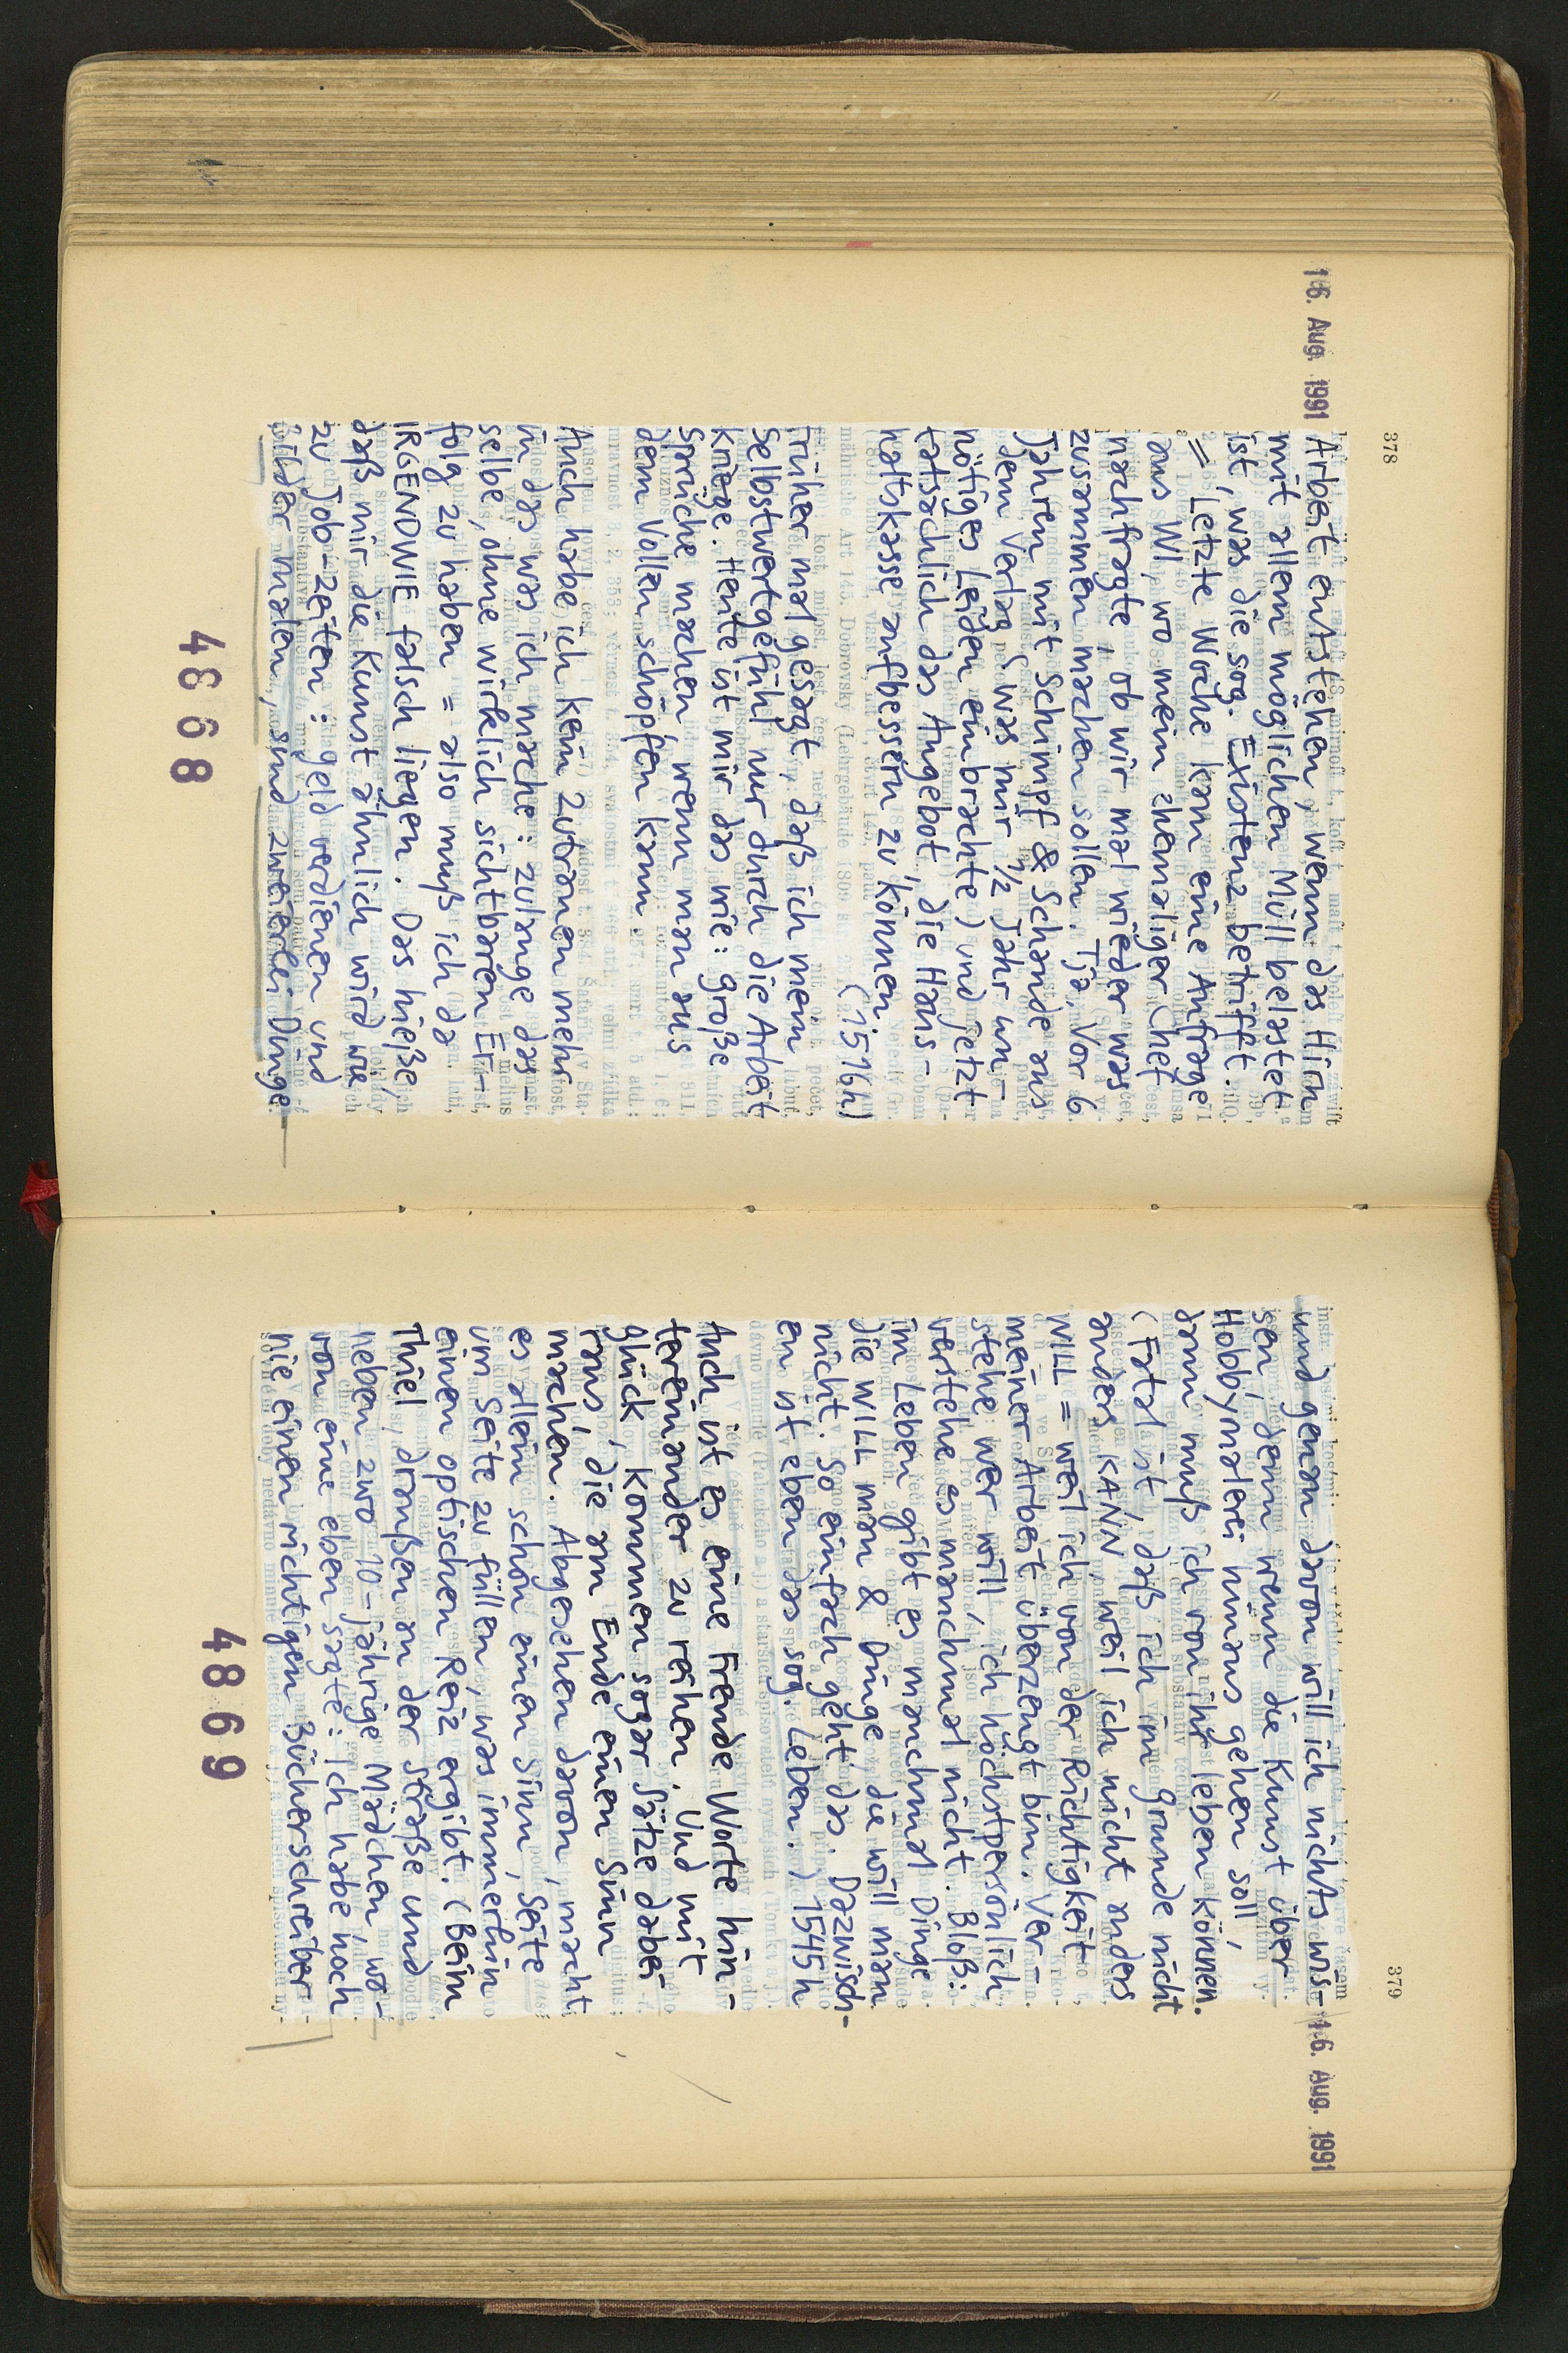 378
16. Aug. 1991
Arbeit entstehen, wenn das Hirn
mit allem möglichen Müll belastet
ist, was die sog. Existenz betrifft.
= Letzte Woche kam eine Anfrage
aus WI, wo mein ehemaliger Chef
nachfragte, ob wir mal wieder was
zusammen machen sollen. Tja. Vor 6
Jahren mit Schimpf & Schande aus
dem Verlag (was mir 1/2 Jahr un-
nötiges Leiden einbrachte) und jetzt
tatsächlich das Angebot, die Haus-
haltskasse aufbessern zu können.
(1516h)
Früher mal gesagt, daß ich mein
Selbstwertgefühl nur durch die Arbeit
kriege. Heute ist mir das wie: große
Sprüche machen, wenn man aus
dem Vollen schöpfen kann.
Auch habe ich kein Zutrauen mehr
in das was ich mache: zulange das-
selbe, ohne wirklich sichtbaren Er-
folg zu haben = also muß ich da
IRGENDWIE falsch liegen. Das hieße,
daß mir die Kunst ähnlich wird wie
zu Job-Zeiten: Geld verdienen und
Bilder malen, sind zweierlei Dinge
4868
379
16. Aug. 1991
und genau davon will ich nichts wis-
sen, denn wenn die Kunst über
Hobbymalerei hinaus gehen soll,
dann muß ich von ihr leben können.
(Fatal ist, daß ich im Grunde nicht
anders KANN, weil ich nicht anders
WILL = weil ich von der Richtigkeit
meiner Arbeit überzeugt bin. Ver-
stehe wer will, ich höchstpersönlich
verstehe es manchmal nicht. Bloß:
im Leben gibt es manchmal Dinge
die WILL man & Dinge, die will man
nicht. So einfach geht das. Dazwisch-
en ist eben das sog. Leben.) 1545h
Auch ist es eine Freude Worte hin-
tereinander zu reihen. Und mit
Glück, kommen sogar Sätze dabei
raus, die am Ende einen Sinn
machen. Abgesehen davon, macht
es allein schon einen Sinn, Seite
um Seite zu füllen, was immerhin
einen optischen Reiz ergibt. (Beim
Thiel, draußen an der Straße und
neben zwo 10-jährige Mädchen, wo-
von eine eben sagte: Ich habe noch
nie einen richtigen Bücherschreiber
4869